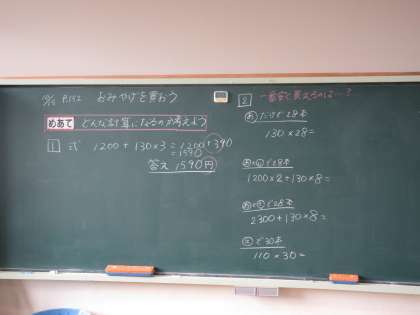 P.132 おみやげを買おう
めあて どんな計算になるのか考えよう
1 式 1200+130×3=1200+390
=1590
答え 1590円
2 一番安く買えるのは…?
あだけで28本
130×28=
で28本
1200×2+130×8=
で28本
2300+130×8=
で30本
110×30=